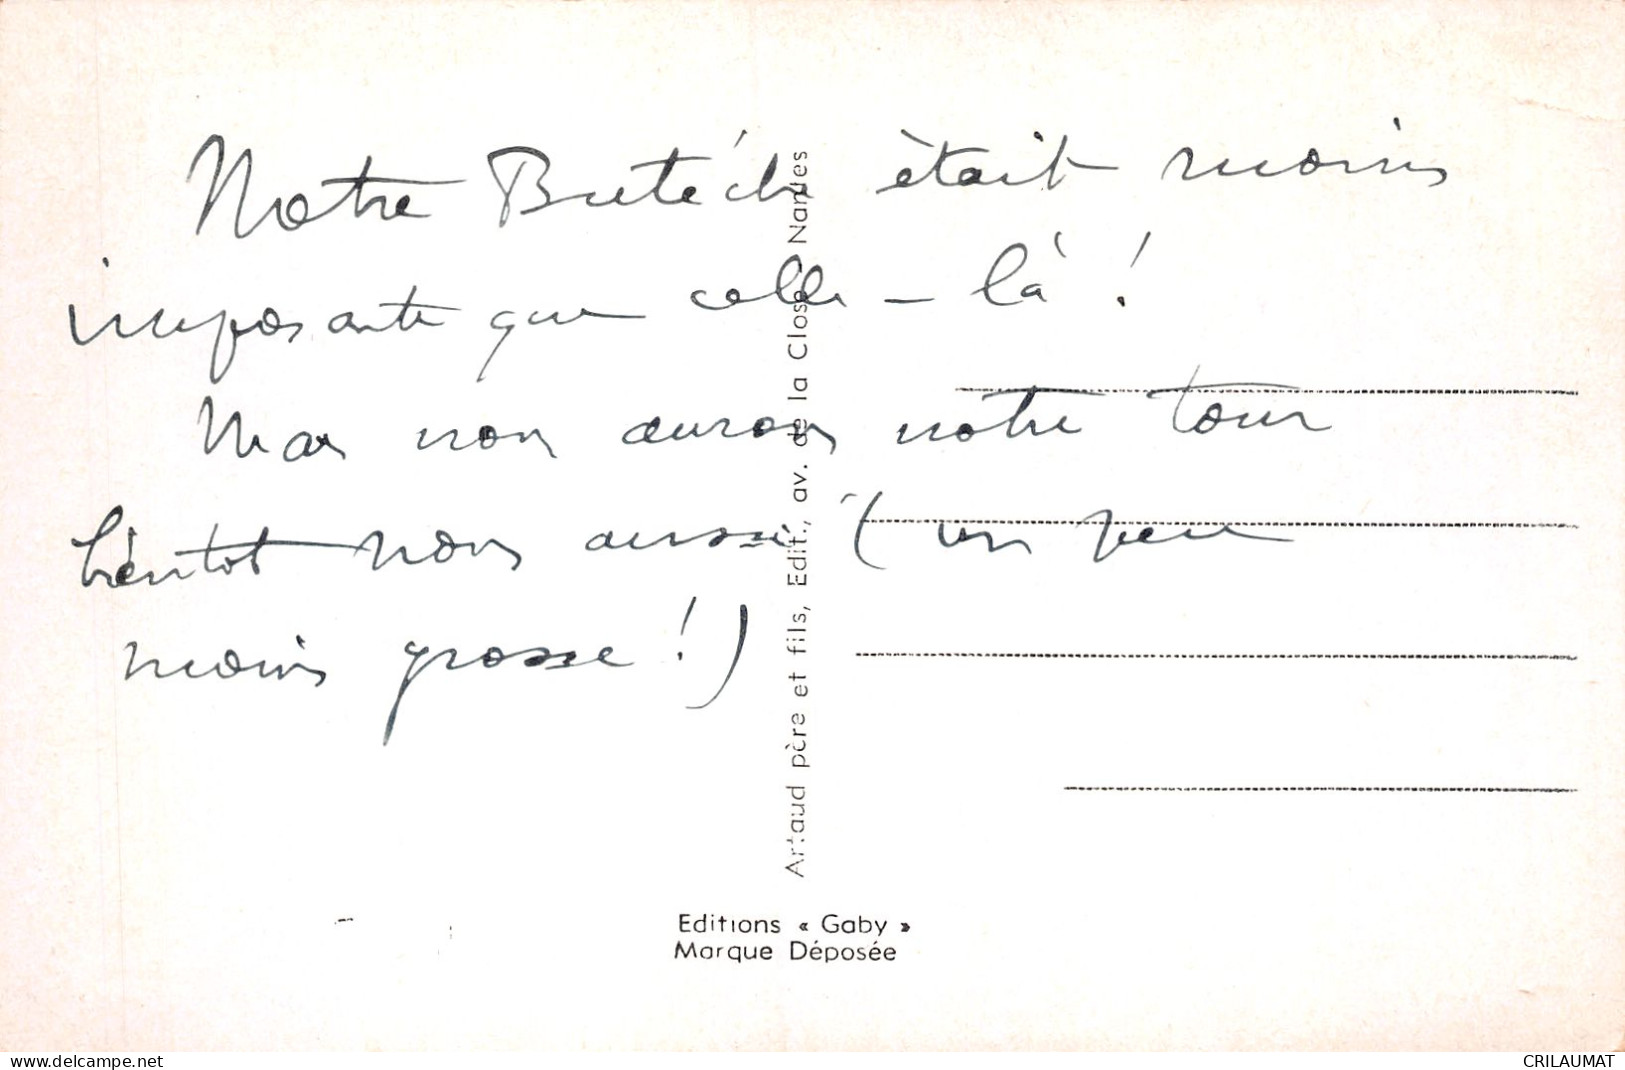 Notre Butèche était moins
imposante que celle-là !
Mais nous aurons notre tour
bientot nous aussi (un peu
moins grosse !)
Artaud père et fils, Edit., av. de la Close - Nantes
Editions « Gaby »
Marque Déposée
www.delcampe.net
CRILAUMAT